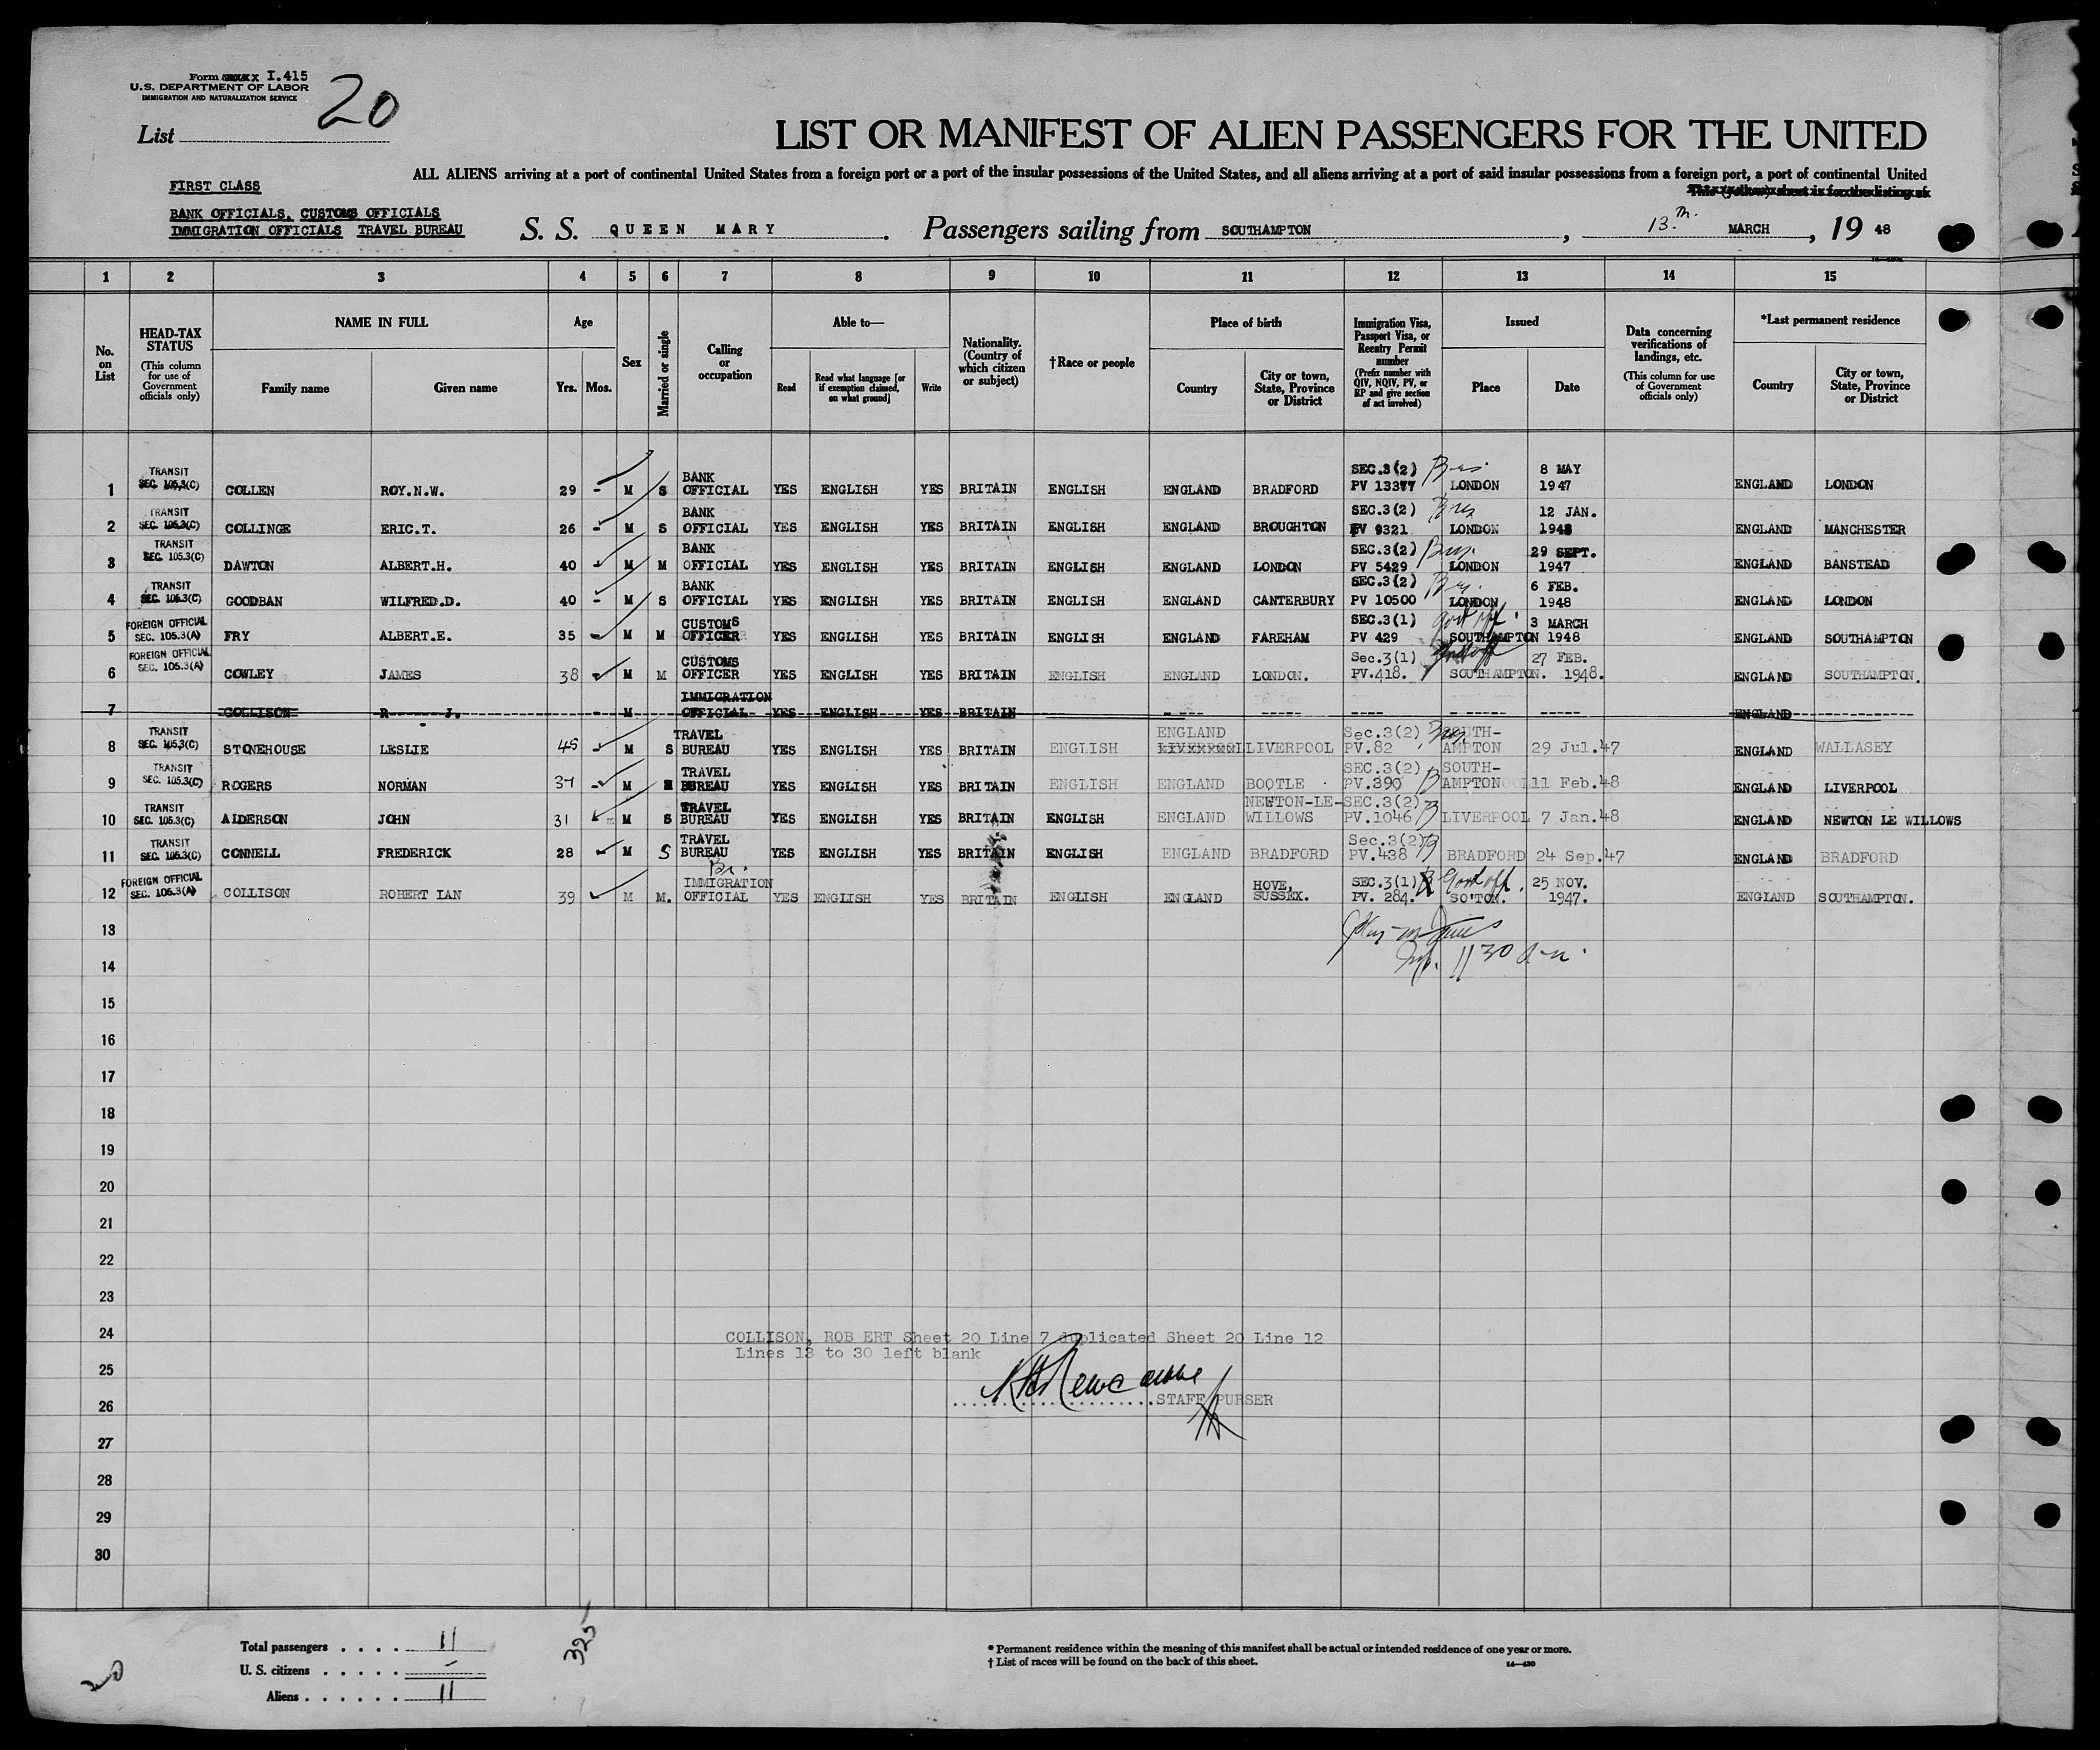 Form I.415
U.S. DEPARTMENT OF LABOR
IMMIGRATION AND NATURALIZATION SERVICE
20
List
LIST OR MANIFEST OF ALIEN PASSENGERS FOR THE UNITED
ALL ALIENS arriving at a port of continental United States from a foreign port or a port of the insular possessions of the United States, and all aliens arriving at a port of said insular possessions from a foreign port, a port of continental United
This (yellow) sheet is for the listing of
FIRST CLASS
BANK OFFICIALS, CUSTOMS OFFICIALS
IMMIGRATION OFFICIALS TRAVEL BUREAU
S. S. QUEEN MARY. Passengers sailing from SOUTHAMPTON, 13th. MARCH, 19 48
1 2 3 4 5 6 7 8 9 10 11 12 13 14 15
No. on List
HEAD-TAX STATUS (This column for use of Government officials only)
NAME IN FULL
Family name
Given name
Age
Yrs. Mos.
Sex
Married or single
Calling or occupation
Able to—
Read
Read what language [or if exemption claimed, on what ground]
Write
Nationality. (Country of which citizen or subject)
†Race or people
Place of birth
Country
City or town, State, Province or District
Immigration Visa, Passport Visa, or Reentry Permit number (Prefix number with QIV, NQIV, PV, or RP and give section of act involved)
Issued
Place
Date
Data concerning verifications of landings, etc. (This column for use of Government officials only)
*Last permanent residence
Country
City or town, State, Province or District
1 TRANSIT SEC. 105.3(C) COLLEN ROY.N.W. 29 - M S BANK OFFICIAL YES ENGLISH YES BRITAIN ENGLISH ENGLAND BRADFORD SEC.3(2) PV 13377 LONDON 8 MAY 1947 ENGLAND LONDON
2 TRANSIT SEC. 105.3(C) COLLINGE ERIC.T. 26 - M S BANK OFFICIAL YES ENGLISH YES BRITAIN ENGLISH ENGLAND BROUGHTON SEC.3(2) PV 9321 LONDON 12 JAN. 1948 ENGLAND MANCHESTER
3 TRANSIT SEC. 105.3(C) DAWTON ALBERT.H. 40 - M M BANK OFFICIAL YES ENGLISH YES BRITAIN ENGLISH ENGLAND LONDON SEC.3(2) PV 5429 LONDON 29 SEPT. 1947 ENGLAND BANSTEAD
4 TRANSIT SEC. 105.3(C) GOODBAN WILFRED.D. 40 - M S BANK OFFICIAL YES ENGLISH YES BRITAIN ENGLISH ENGLAND CANTERBURY SEC.3(2) PV 10500 LONDON 6 FEB. 1948 ENGLAND LONDON
5 FOREIGN OFFICIAL SEC. 105.3(A) FRY ALBERT.E. 35 - M M CUSTOMS OFFICER YES ENGLISH YES BRITAIN ENGLISH ENGLAND FAREHAM SEC.3(1) PV 429 Govt off. SOUTHAMPTON 3 MARCH 1948 ENGLAND SOUTHAMPTON
6 FOREIGN OFFICIAL SEC. 105.3(A) COWLEY JAMES 38 - M M CUSTOMS OFFICER YES ENGLISH YES BRITAIN ENGLISH ENGLAND LONDON. Sec.3(1) PV.418. Govt off SOUTHAMPTON. 27 FEB. 1948. ENGLAND SOUTHAMPTON.
7 COLLISON R J. - M IMMIGRATION OFFICIAL YES ENGLISH YES BRITAIN ENGLAND
8 TRANSIT SEC. 105.3(C) STONEHOUSE LESLIE 45 - M S TRAVEL BUREAU YES ENGLISH YES BRITAIN ENGLISH ENGLAND LIVERPOOL Sec.3(2) PV.82 SOUTH-AMPTON 29 Jul.47 ENGLAND WALLASEY
9 TRANSIT SEC. 105.3(C) ROGERS NORMAN 37 - M M TRAVEL BUREAU YES ENGLISH YES BRITAIN ENGLISH ENGLAND BOOTLE SEC.3(2) PV.390 SOUTH-AMPTON 11 Feb.48 ENGLAND LIVERPOOL
10 TRANSIT SEC. 105.3(C) ALDERSON JOHN 31 M S TRAVEL BUREAU YES ENGLISH YES BRITAIN ENGLISH ENGLAND NEWTON-LE-WILLOWS SEC.3(2) PV.1046 LIVERPOOL 7 Jan.48 ENGLAND NEWTON LE WILLOWS
11 TRANSIT SEC. 105.3(C) CONNELL FREDERICK 28 - M S TRAVEL BUREAU YES ENGLISH YES BRITAIN ENGLISH ENGLAND BRADFORD Sec.3(2) PV.438 BRADFORD 24 Sep.47 ENGLAND BRADFORD
12 FOREIGN OFFICIAL SEC. 105.3(A) COLLISON ROBERT IAN 39 M M. Br. IMMIGRATION OFFICIAL YES ENGLISH YES BRITAIN ENGLISH ENGLAND HOVE, SUSSEX. SEC.3(1) PV. 284. Govt off. SO'TON. 25 NOV. 1947. ENGLAND SOUTHAMPTON.
13
14 1130 am.
15
16
17
18
19
20
21
22
23
24 COLLISON, ROB ERT Sheet 20 Line 7 duplicated Sheet 20 Line 12
Lines 13 to 30 left blank
25
26 STAFF PURSER
27
28
29
30
325
20
Total passengers . . . . 11
U. S. citizens . . . . . -
Aliens . . . . . . 11
* Permanent residence within the meaning of this manifest shall be actual or intended residence of one year or more.
† List of races will be found on the back of this sheet.